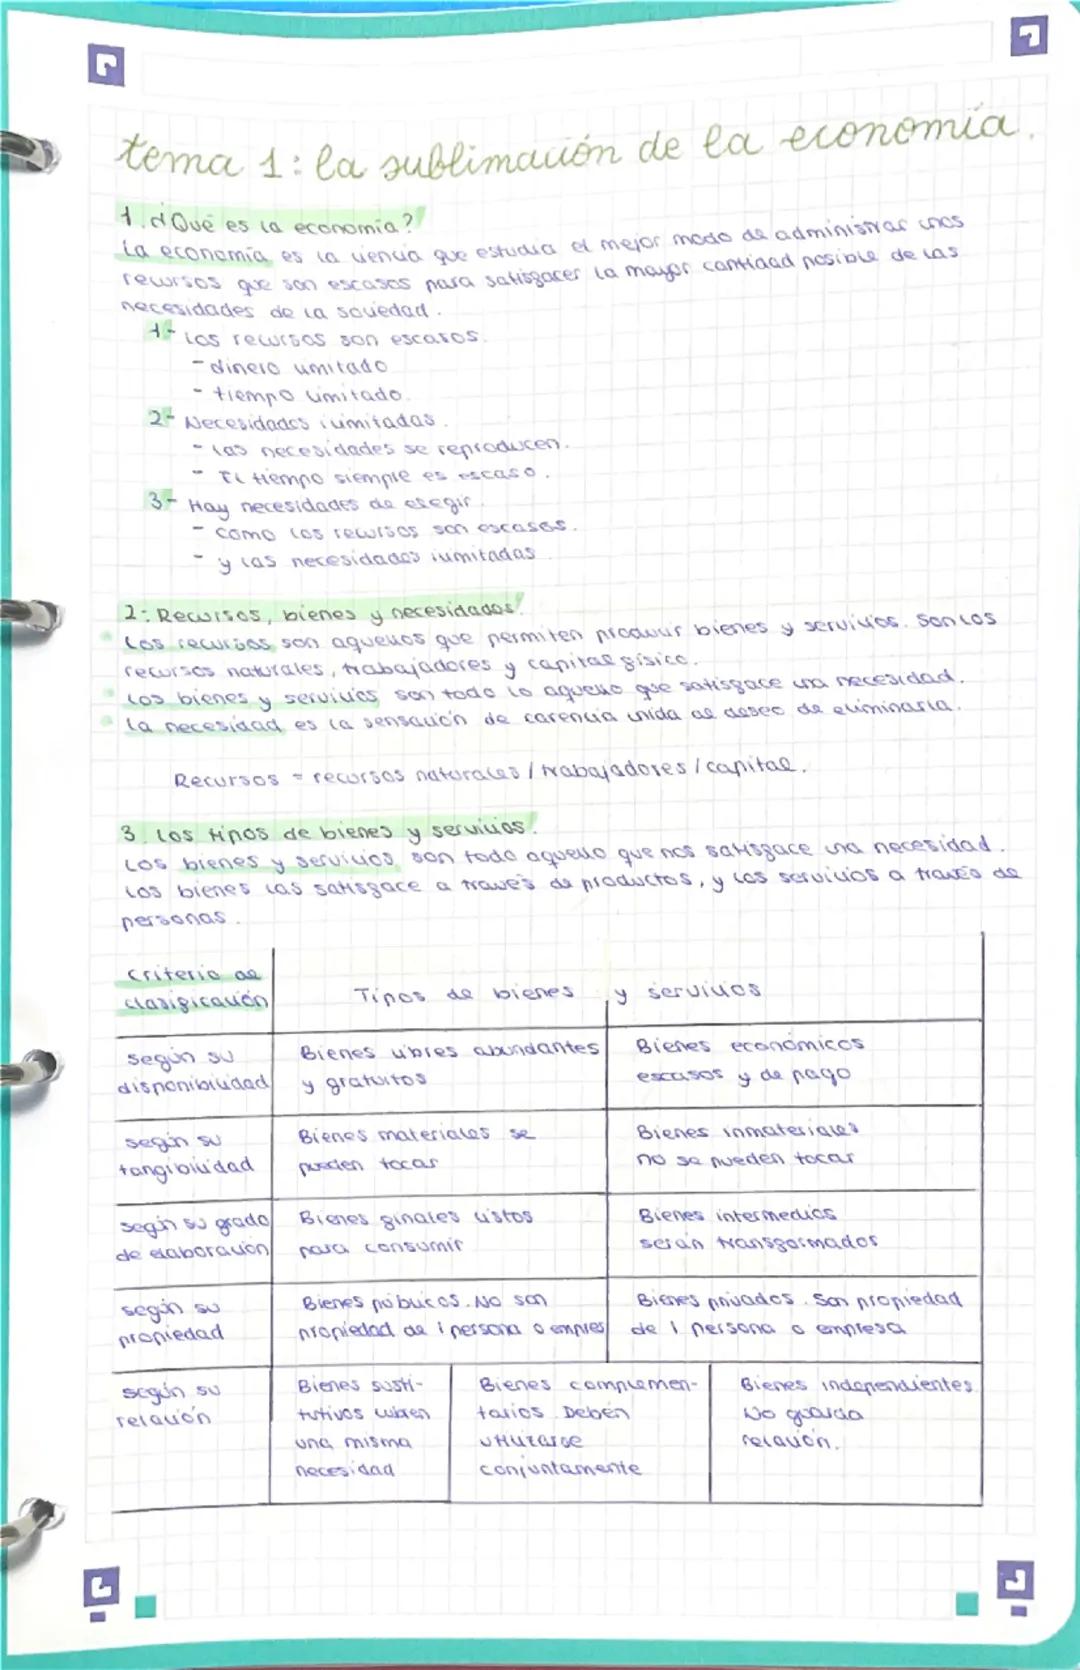 tema 1: la sublimación de la economía.
1. ¿Qué es la economía?
La economía es la ciencia que estudia el mejor modo de administrar unos
recursos que son escasos para satisfacer la mayor cantidad posible de las
necesidades de la sociedad.
1- Los recursos son escasos.
- dinero limitado
- tiempo limitado.
2- Necesidades ilimitadas.
- las necesidades se reproducen.
- El tiempo siempre es escaso.
3- Hay necesidades de elegir.
- como los recursos son escasos.
- y las necesidades ilimitadas
2: Recursos, bienes y necesidades.
Los recursos son aquellos que permiten producir bienes y servicios. Son los
recursos naturales, trabajadores y capital físico.
Los bienes y servicios son todo lo aquello que satisface una necesidad.
La necesidad es la sensación de carencia unida al deseo de eliminarla.
Recursos = recursos naturales / trabajadores / capital.
3. Los tipos de bienes y servicios.
Los bienes y servicios son todo aquello que nos satisface una necesidad.
Los bienes las satisface a través de productos, y los servicios a través de
personas.
Criterio de
clasificación
Tipos de bienes y servicios
según su
disponibilidad
Bienes libres abundantes
y gratuitos
Bienes económicos
escasos y de pago
según su
tangibilidad
Bienes materiales se
pueden tocar
Bienes inmateriales
no se pueden tocar
según su grado
de elaboración
Bienes finales listos
para consumir
Bienes intermedios
serán transformados
según su
propiedad
Bienes públicos. No son
propiedad de 1 persona o empres
Bienes privados. Son propiedad
de 1 persona o empresa
según su
relación
Bienes susti-
tutivos cubren
una misma
necesidad
Bienes complemen-
tarios. Deben
utilizarse
conjuntamente
Bienes independientes.
No guarda
relación.